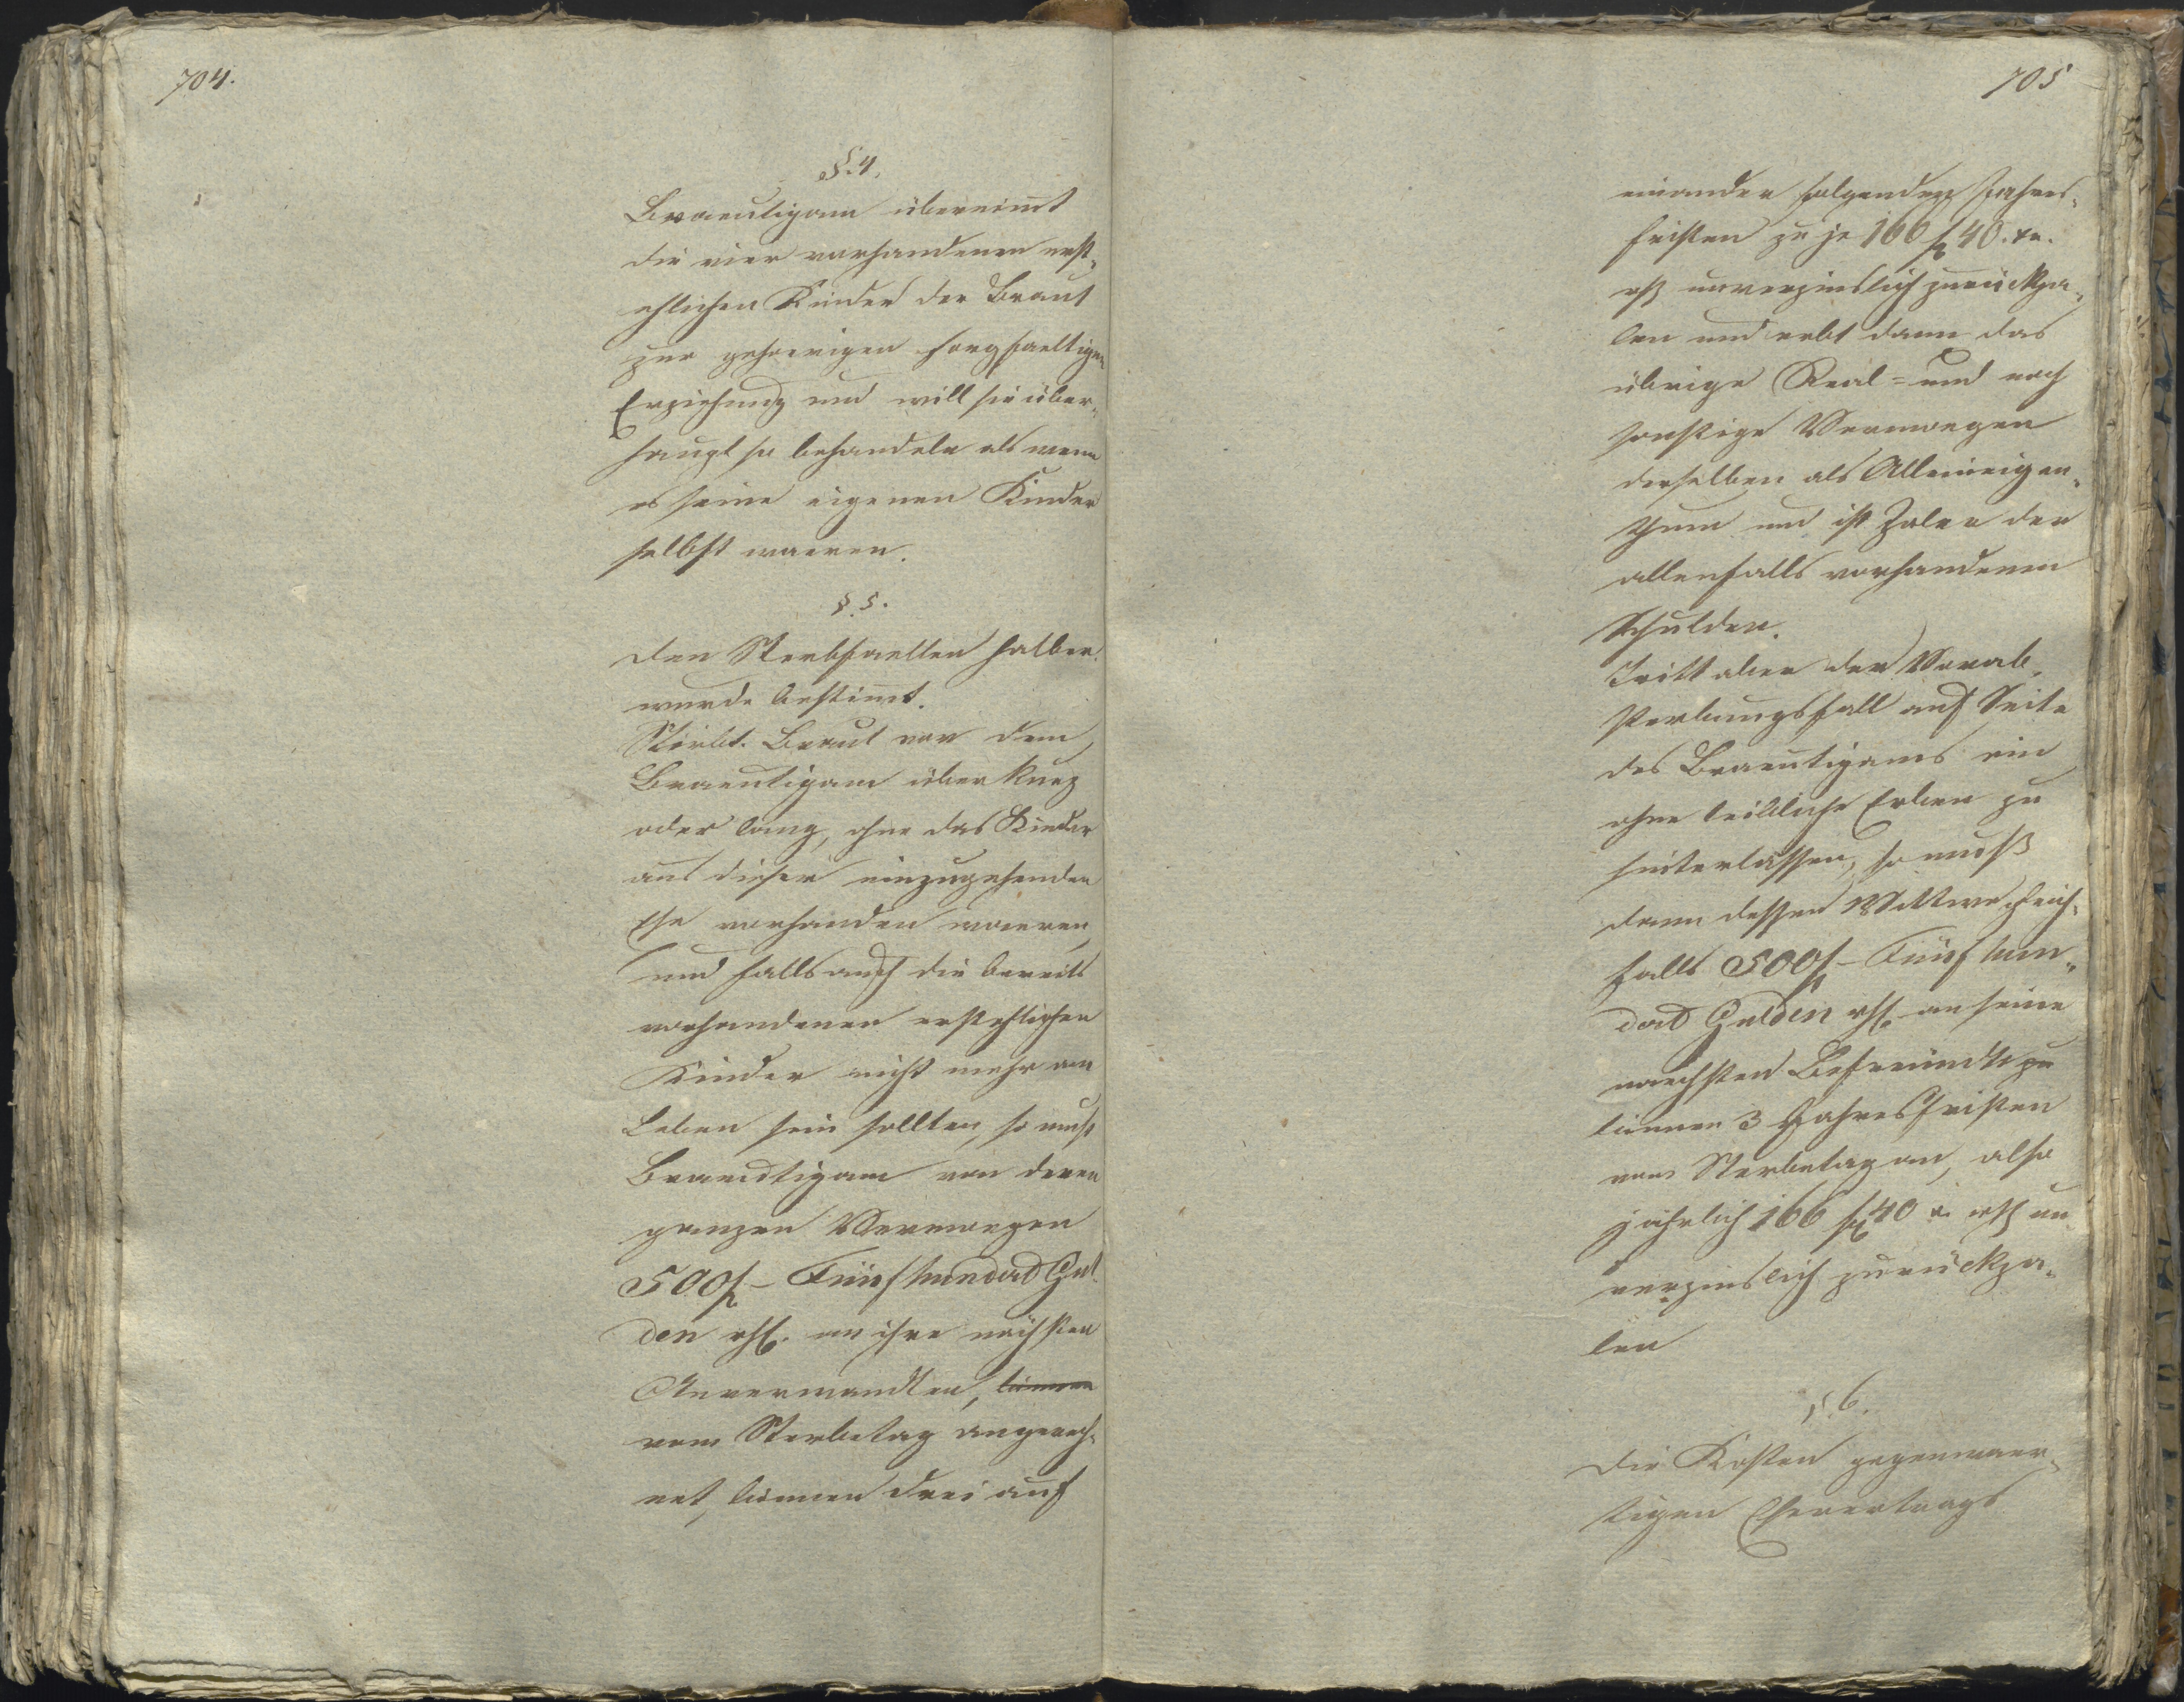 704.
§. 4.
Braeutigam übernimt
die vier vorhandenen erst¬
ehlichen Kinder der Braut
zur gehoerigen sorgfaeltigen
Erziehung und will sie über¬
haupt so behandeln als wenn
es seine eigenen Kinder
selbst waeren.
§. 5.
Den Sterbfaellen halber
wurde bestimt.
Stirbt Braut vor dem
Braeutigam über kurz
oder lang, ohne das Kinder
aus dieser einzugehenden
Ehe vorhanden waeren,
und falls auch die bereits
vorhandenen erstehlichen
Kinder nicht mehr am
Leben sein sollten, so muß
Braeutigam von deren
ganzen Vermoegen
500 f – Fünfhundert Gul¬
den rhl. an ihre nächsten
Anverwandten, binnen
vom Sterbetag angerech¬
net, binnen drei auf
705
einander folgenden Jahres¬
fristen zu je 166 f 40. xr.
rh unverzinslich zurückza¬
len und erbt dann das
übrige Real= und noch
sonstige Vermoegen
derselben als Alleineigen¬
thum und ist Zaler der
allenfalls vorhandenen
Schulden.
Tritt aber der Vorab¬
sterbungsfall auf Seite
des Braeutigams ein
ohne leibliche Erben zu
hinterlassen, so muß
dann dessen Wittwe gleich¬
falls 500 f – Fünfhun¬
dert Gulden rhl. an seine
naechsten Befreundte zu
binnen 3 Jahresfristen
vom Sterbetag an, also
jährlich 166 f 40 x. rhl un
verzinslich zurückza¬
len
§. 6.
Die Kosten gegenwaer¬
tigen Ehevertrags